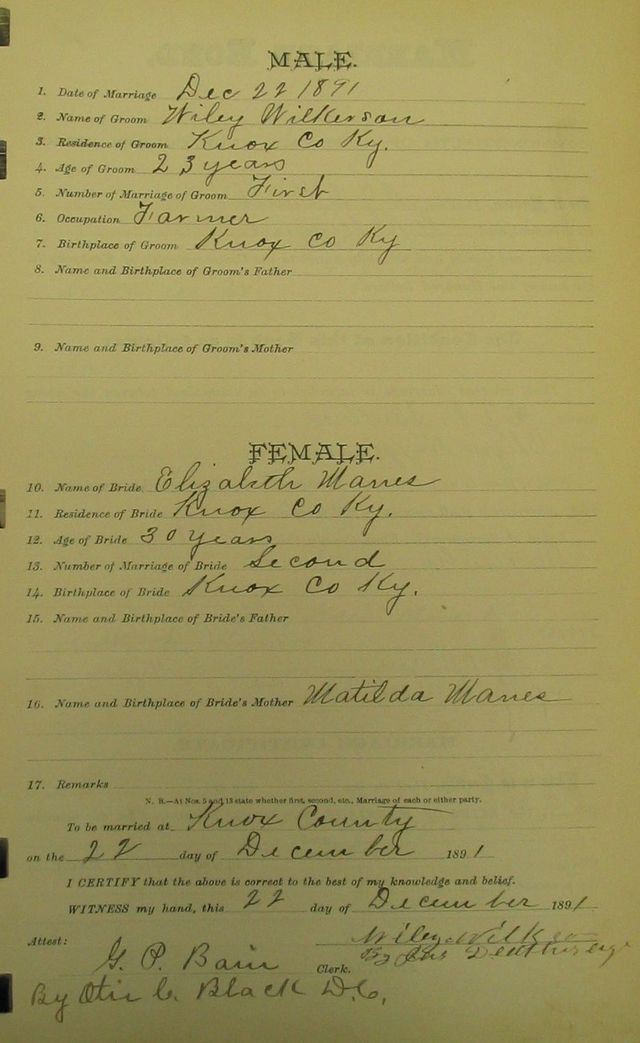 MALE.
1. Date of Marriage Dec 22 1891
2. Name of Groom Wiley Wilkerson
3. Residence of Groom Knox Co Ky.
4. Age of Groom 23 years
5. Number of Marriage of Groom First
6. Occupation Farmer
7. Birthplace of Groom Knox Co Ky
8. Name and Birthplace of Groom's Father
9. Name and Birthplace of Groom's Mother
FEMALE.
10. Name of Bride Elizabeth Manes
11. Residence of Bride Knox Co Ky.
12. Age of Bride 30 years
13. Number of Marriage of Bride Second
14. Birthplace of Bride Knox Co Ky.
15. Name and Birthplace of Bride's Father
16. Name and Birthplace of Bride's Mother Matilda Manes
17. Remarks
N. B.—At Nos. 5 and 13 state whether first, second, etc., Marriage of each or either party.
To be married at Knox County
on the 22 day of December 1891
I CERTIFY that the above is correct to the best of my knowledge and belief.
WITNESS my hand, this 22 day of December 1891
Attest: Wiley
G. P. Bain Clerk. By
By Otis C. Black D.C.